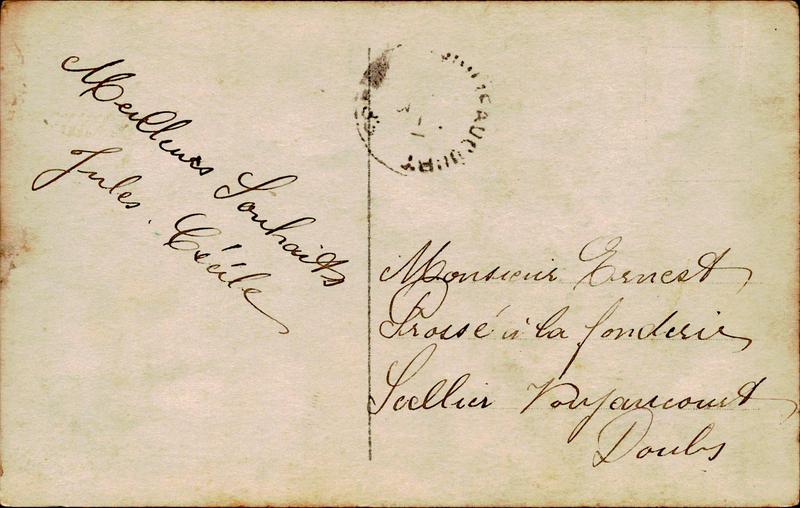 Meilleurs Souhaits
Jules. Cécile
Monsieur Ernest
Prossé à la fonderie
Sellier Voujaucourt
Doubs